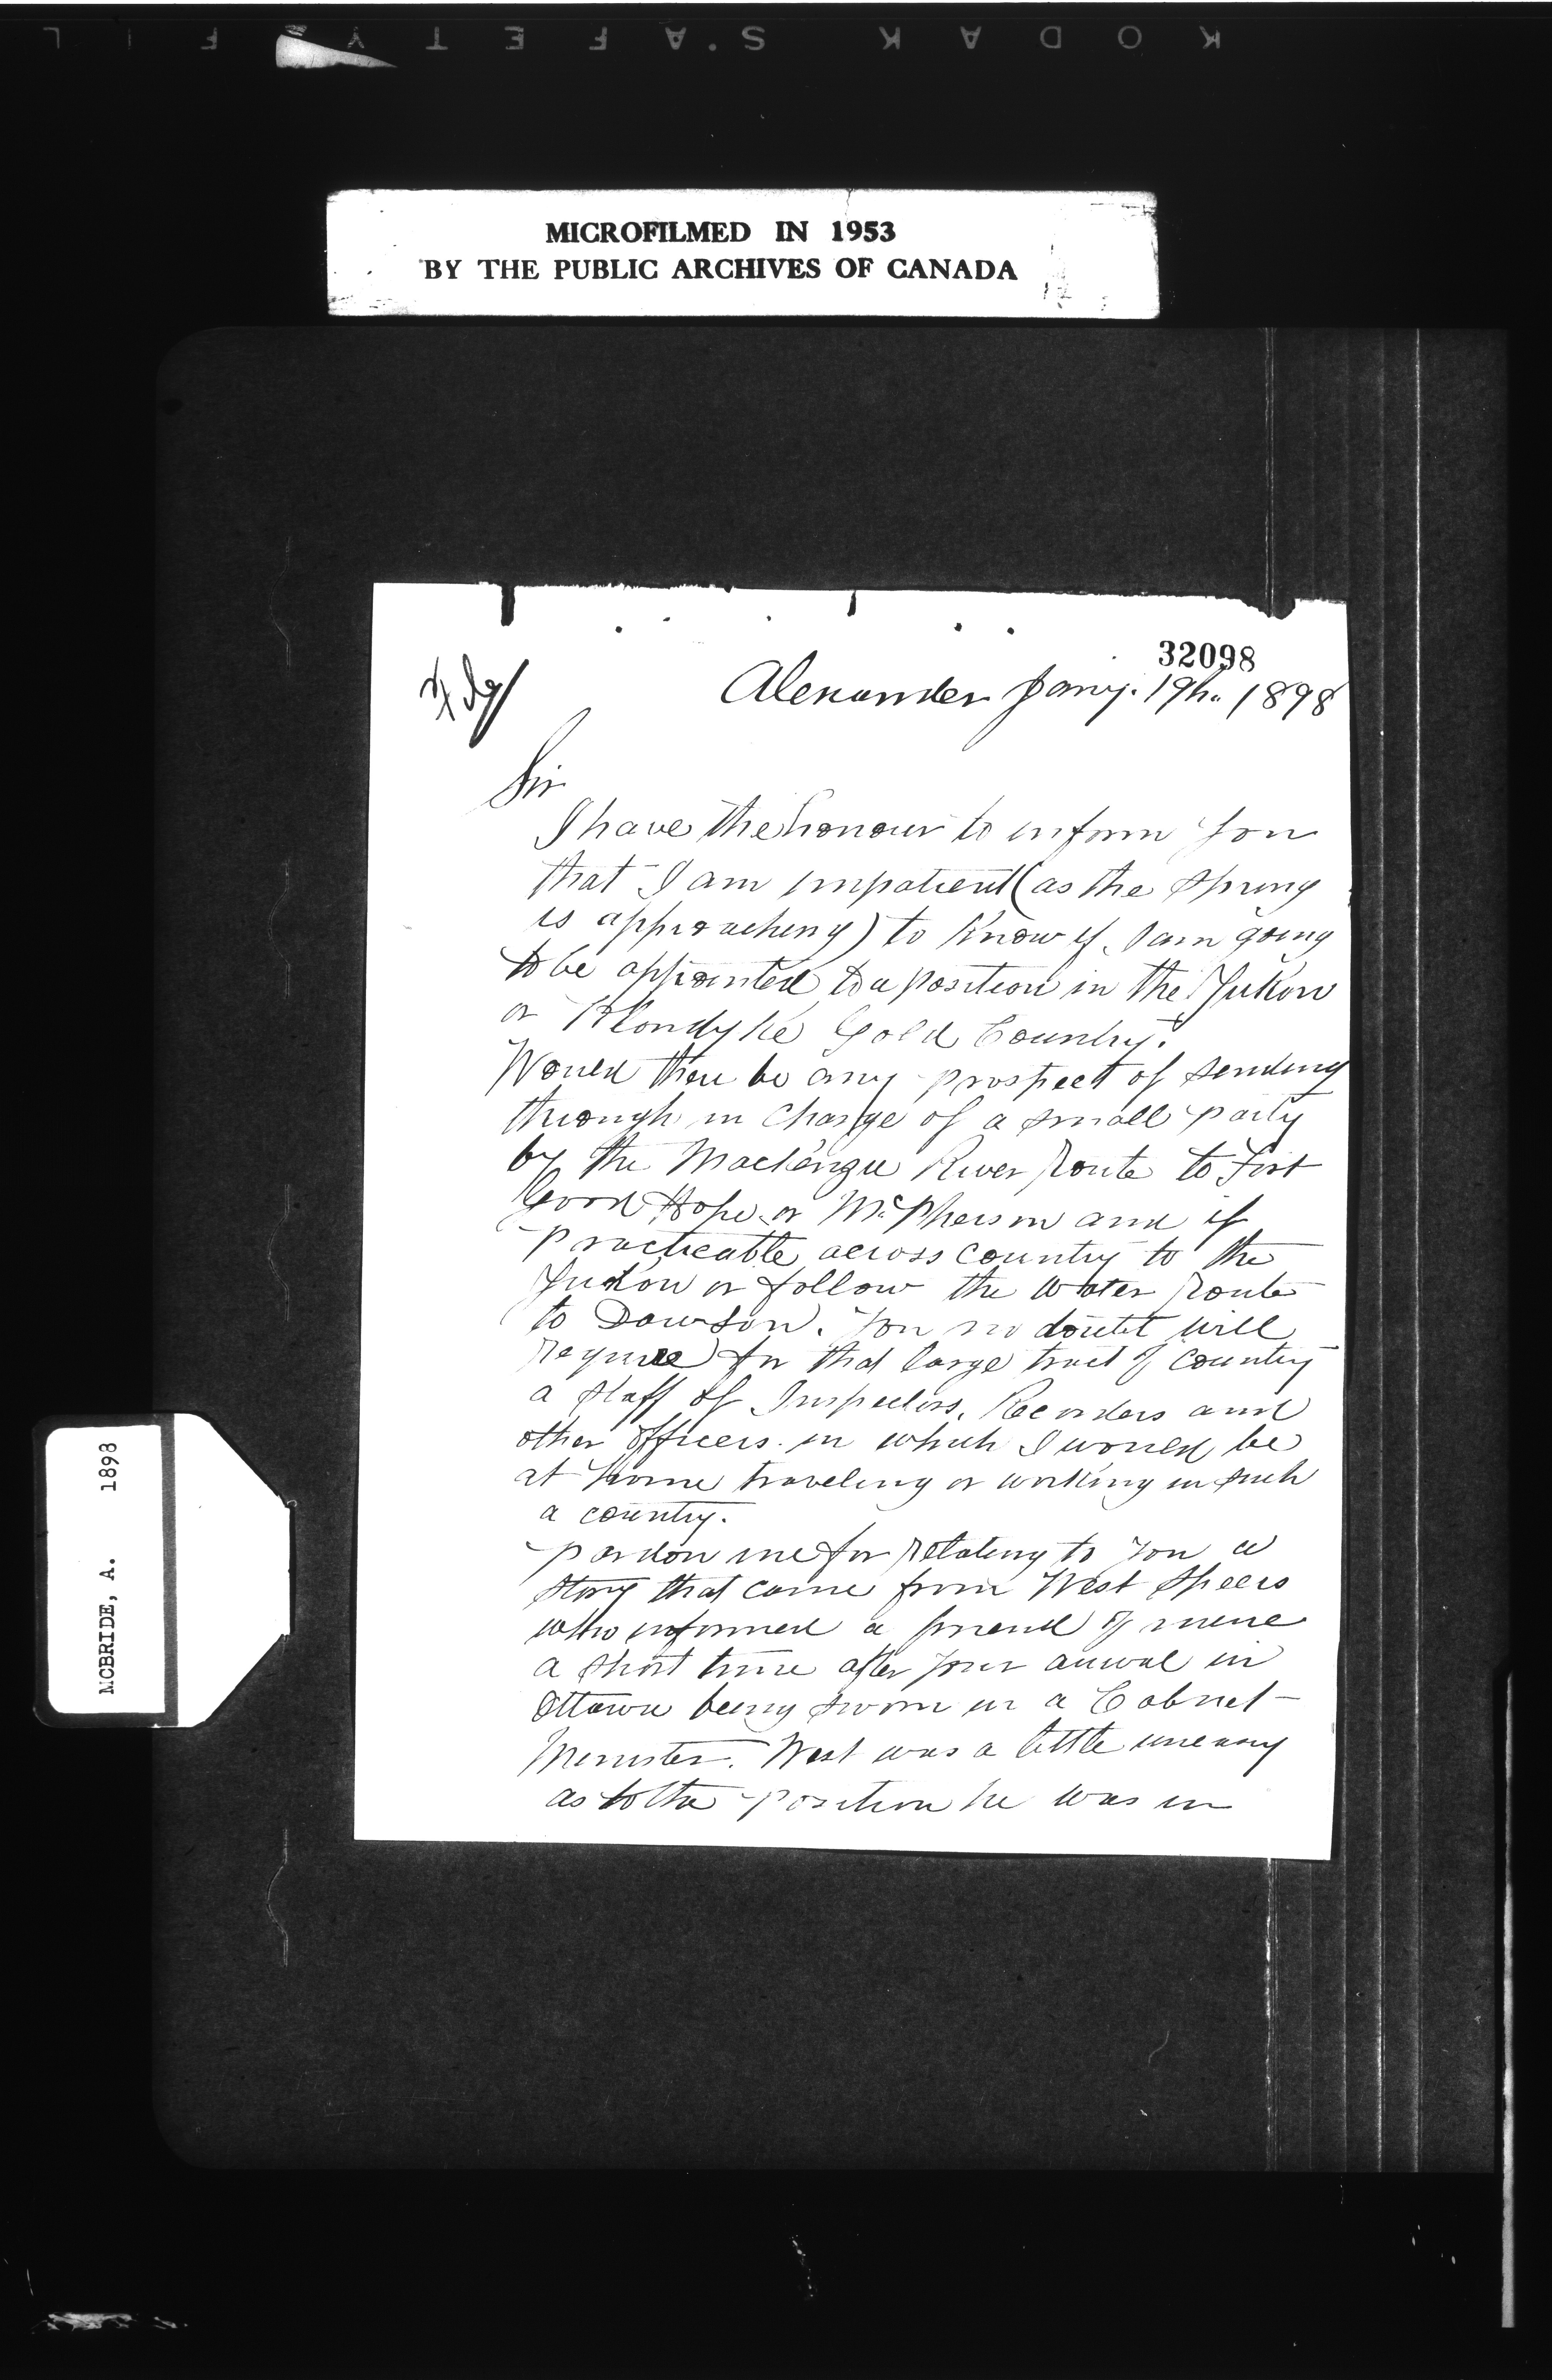 KODAK SAFETY FIL
MICROFILMED IN 1953
BY THE PUBLIC ARCHIVES OF CANADA
32098
Alexander Jany. 19h. 1898
Sir
I have the honour to inform you
that I am impatient (as the Spring
is approaching) to know if I am going
to be appointed to a position in the Yukon
or Klondyke Gold Country.
Would there be any prospect of sending
through in charge of a small party
by the Mackenzie River Route to Fort
Good Hope or McPherson and if
practicable across country to the
Yukon or follow the water Route
to Dawson. You no doubt will
Require for that large tract of country
a staff of Inspectors, Recorders and
other officers in which I would be
at home traveling or working in such
a country.
pardon me for Relating to you a
story that came from West Speers
who informed a friend of mine
a short time after your arrival in
Ottawa being sworn in a Cabinet
Minister. West was a little uneasy
as to the position he was in
MCBRIDE, A. 1898